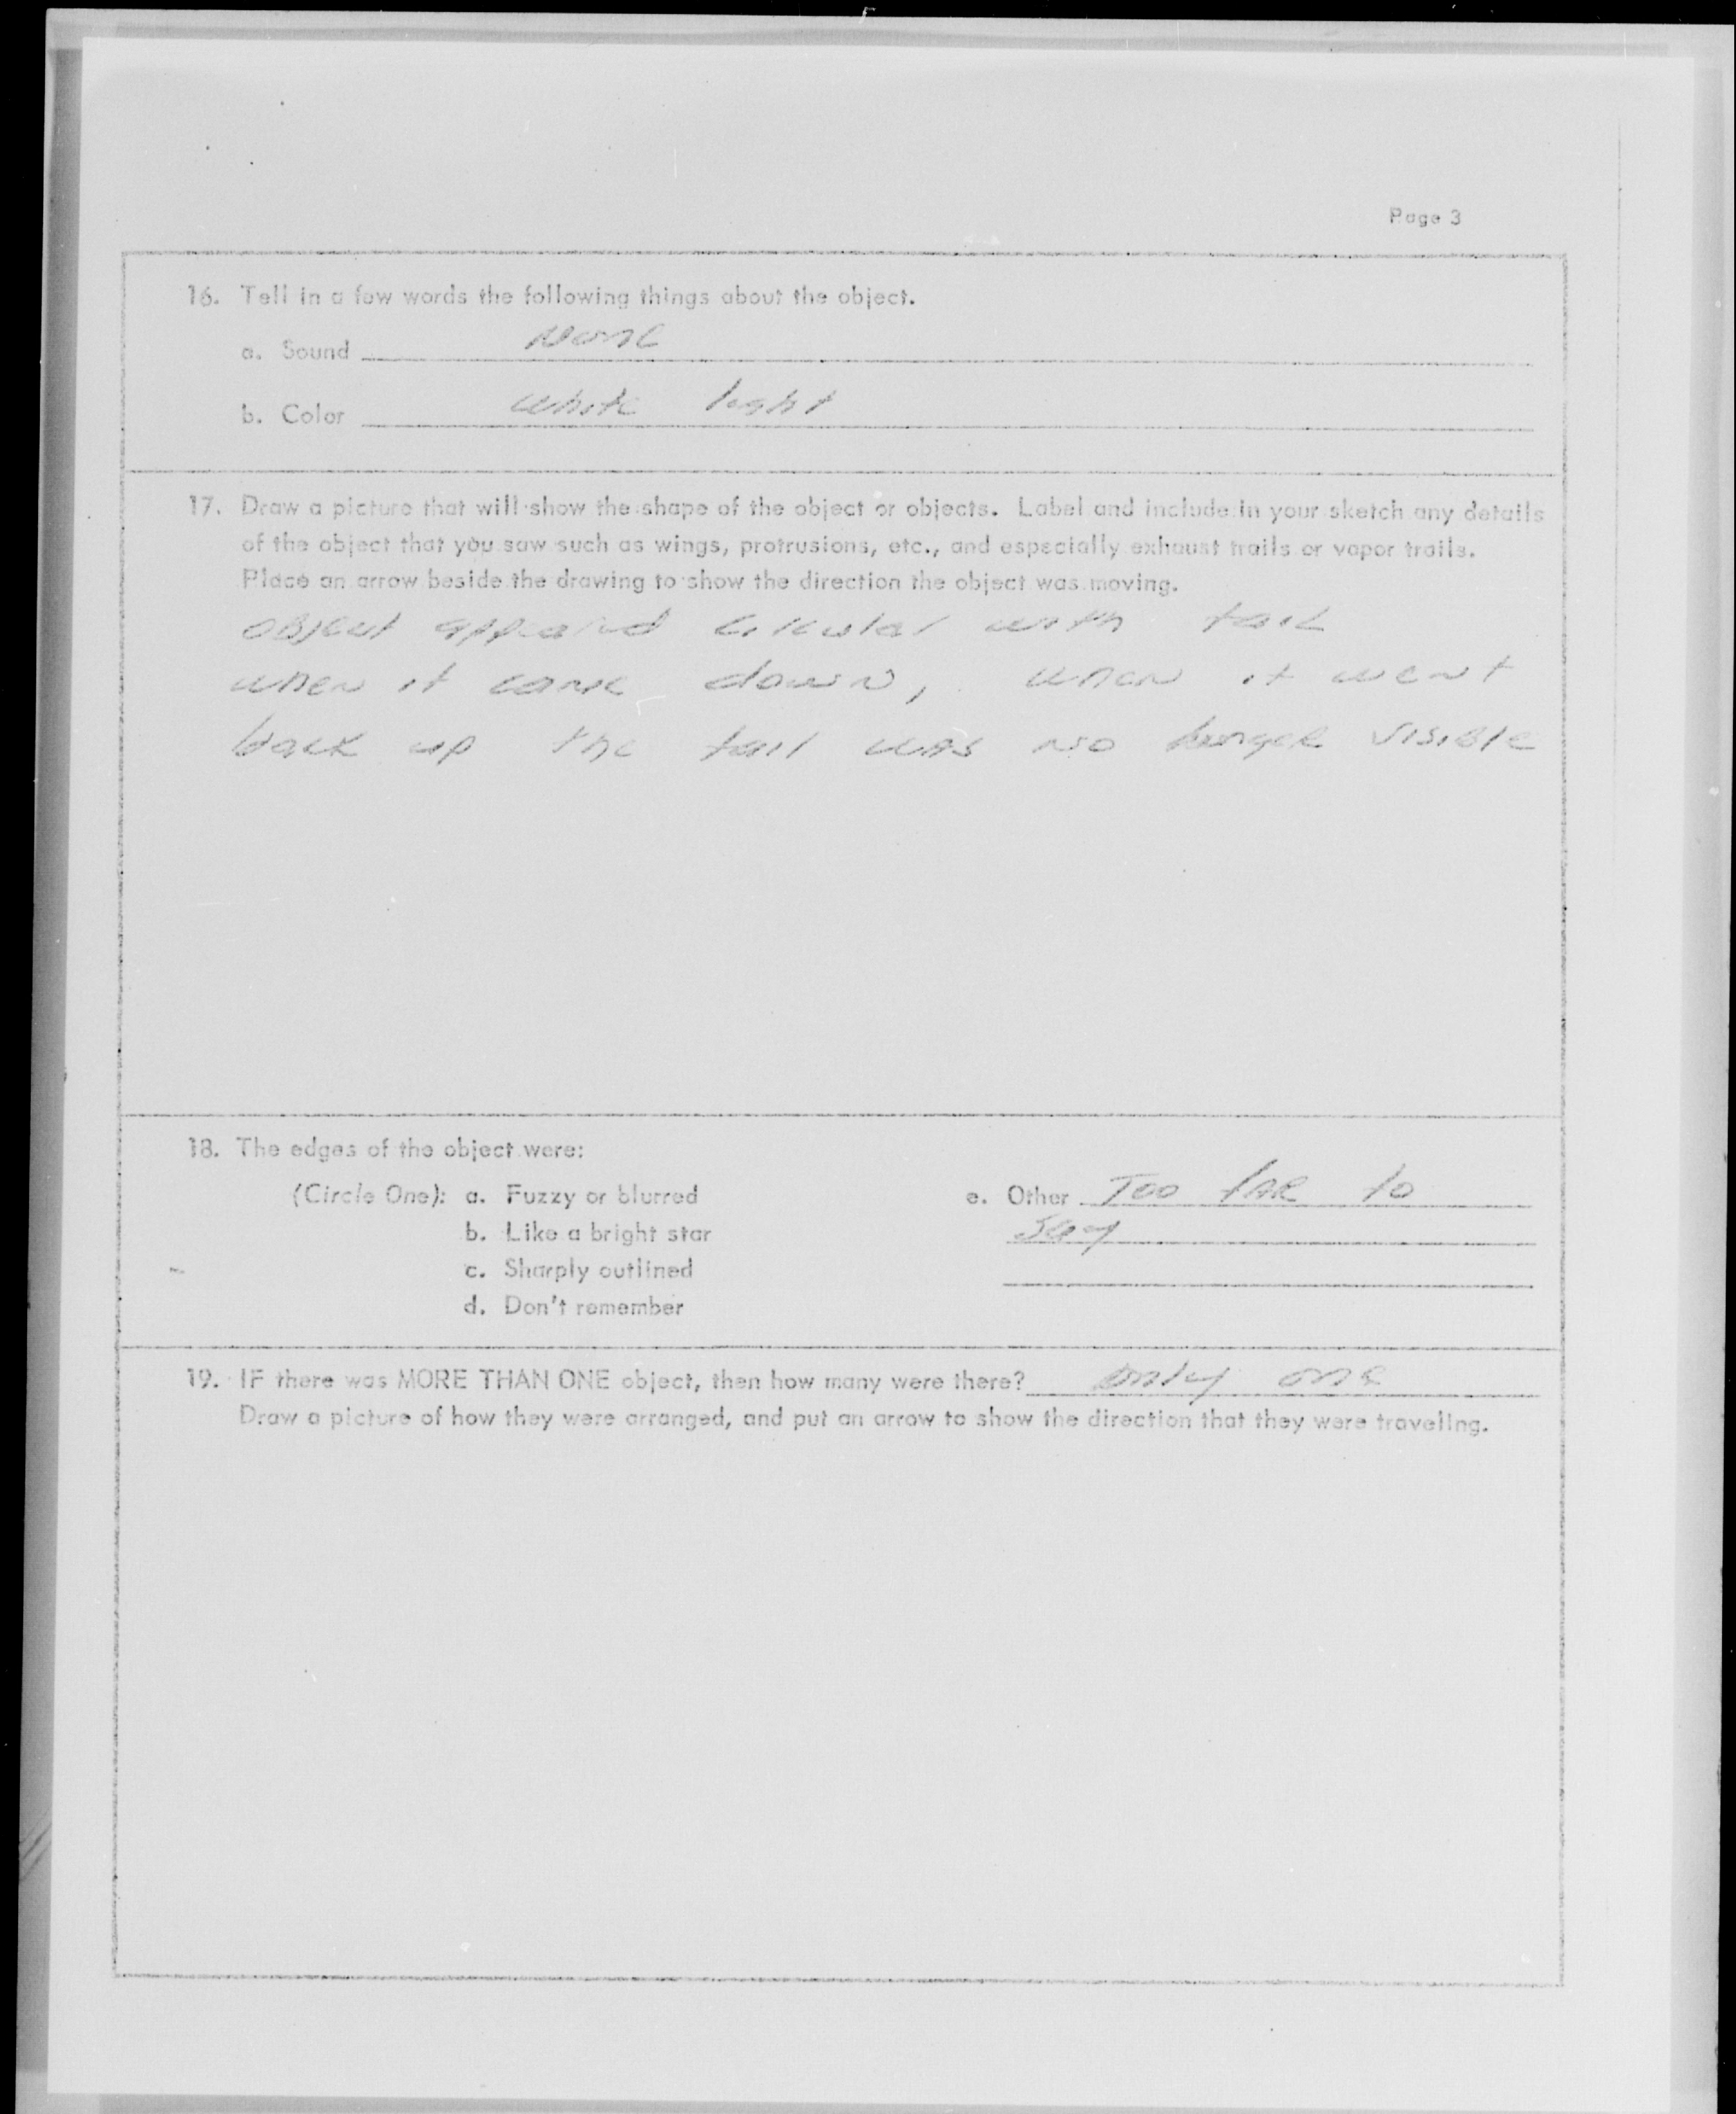 Page 3
16. Tell in a few words the following things about the object.
a. Sound None
b. Color white light
17. Draw a picture that will show the shape of the object or objects. Label and include in your sketch any details
of the object that you saw such as wings, protrusions, etc., and especially exhaust trails or vapor trails.
Place an arrow beside the drawing to show the direction the object was moving.
object appeared circular with tail
when it came down, when it went
back up the tail was no longer visible
18. The edges of the object were:
(Circle One): a. Fuzzy or blurred e. Other Too far to
b. Like a bright star say
c. Sharply outlined
d. Don't remember
19. IF there was MORE THAN ONE object, then how many were there? only one
Draw a picture of how they were arranged, and put an arrow to show the direction that they were traveling.